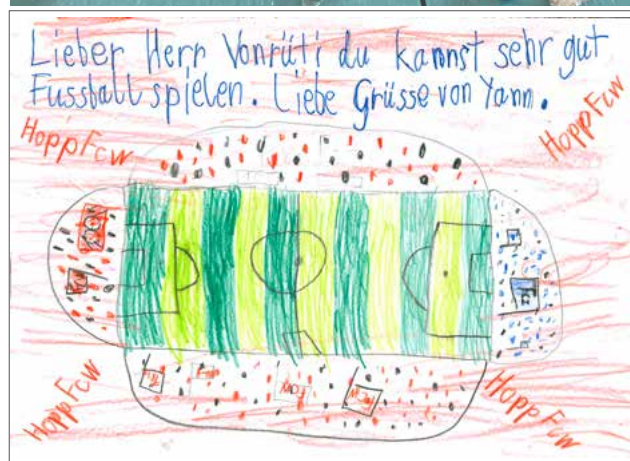 Lieber Herr Vonrüti du kannst sehr gut
Fussball spielen. Liebe Grüsse von Yann.
Hopp Fcw
Hopp Fcw
FCW
Hopp Fcw
Hopp Fcw